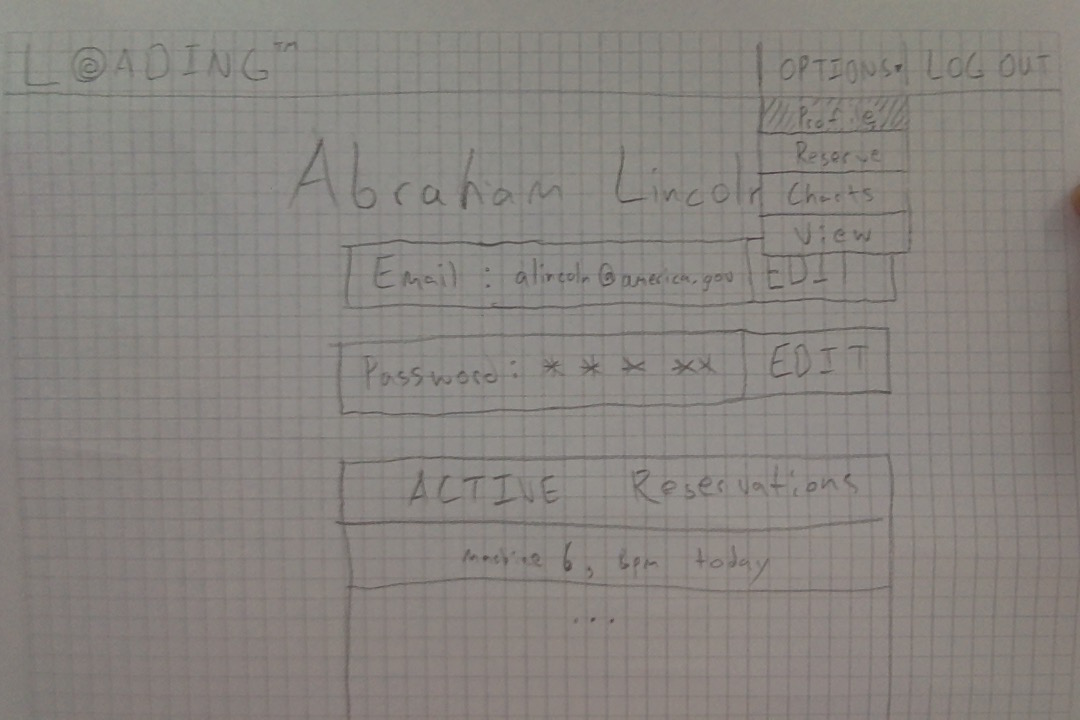 L@ADING™ OPTIONS▾ LOG OUT
Profile
Reserve
Abraham Lincoln
Charts
View
Email : alincoln@america.gov EDI
Password: * * * ** EDIT
ACTIVE Reservations
machine 6, 8pm today
...